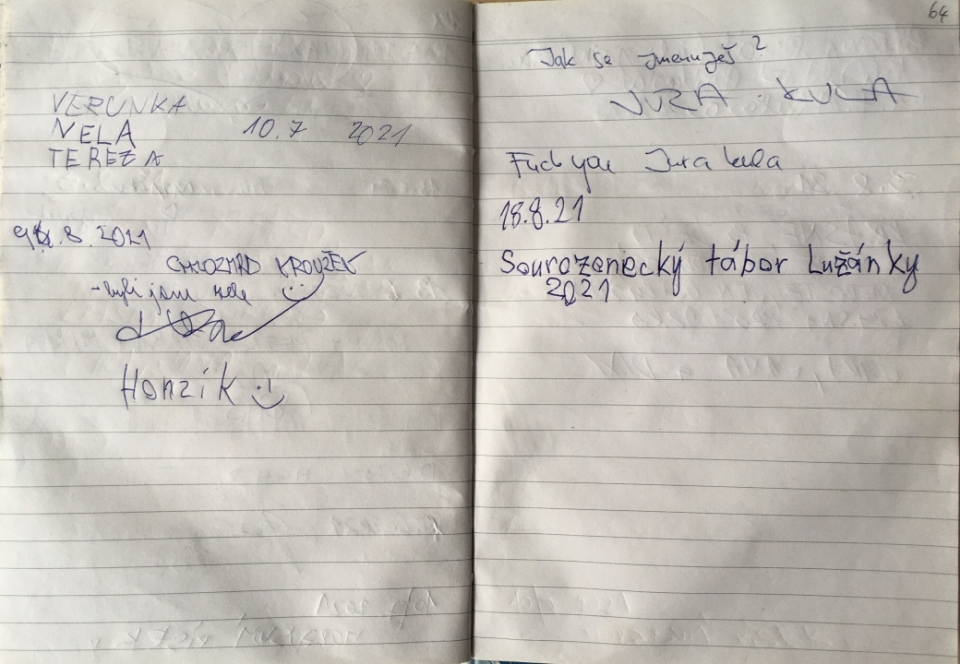 VERUNKA
NELA 10.7 2021
TEREZA
.8.2021
KROUŽEK
- byli jsme zde
Honzík :-)
64
Jak se jmenuješ?
JURA KULA
Fuck you Jura kula
18.8.21
Sourozenecký tábor Lužánky
2021